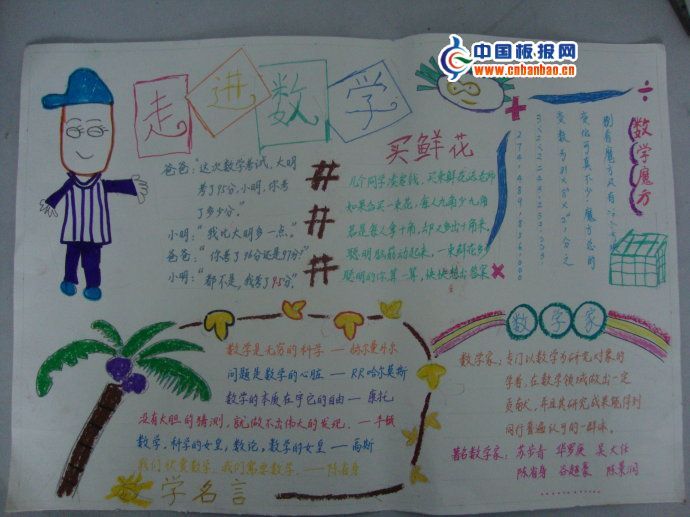 中国板报网
www.cnbanbao.cn
走进数学
爸爸:“这次数学考试,大明
考了95分,小明,你考
了多少分。”
小明:“我比大明多一点。”
爸爸:“你考了96分还是97分?”
小明:“都不是,我考了9.5分。”
买鲜花
几个同学凑着钱,买束鲜花送老师
如果合买一束花,每人九角少九角
若是每人拿十角,却又多出十角来。
聪明的你算一算,快快想出答案
数学魔方
数学家
数学家:专门以数学为研究对象的
学者,在数学领域做出一定
贡献,并且其研究成果能得到
同行普遍认可的一群体。
著名数学家:苏步青 华罗庚 吴大任
陈省身 谷超豪 陈景润
数学是无穷的科学——赫尔曼外尔
问题是数学的心脏——P.R.哈尔莫斯
数学的本质在于它的自由——康托
没有大胆的猜测,就做不出伟大的发现。——牛顿
数学,科学的女皇,数论,数学的女皇——高斯
我们欣赏数学,我们需要数学——陈省身
数学名言